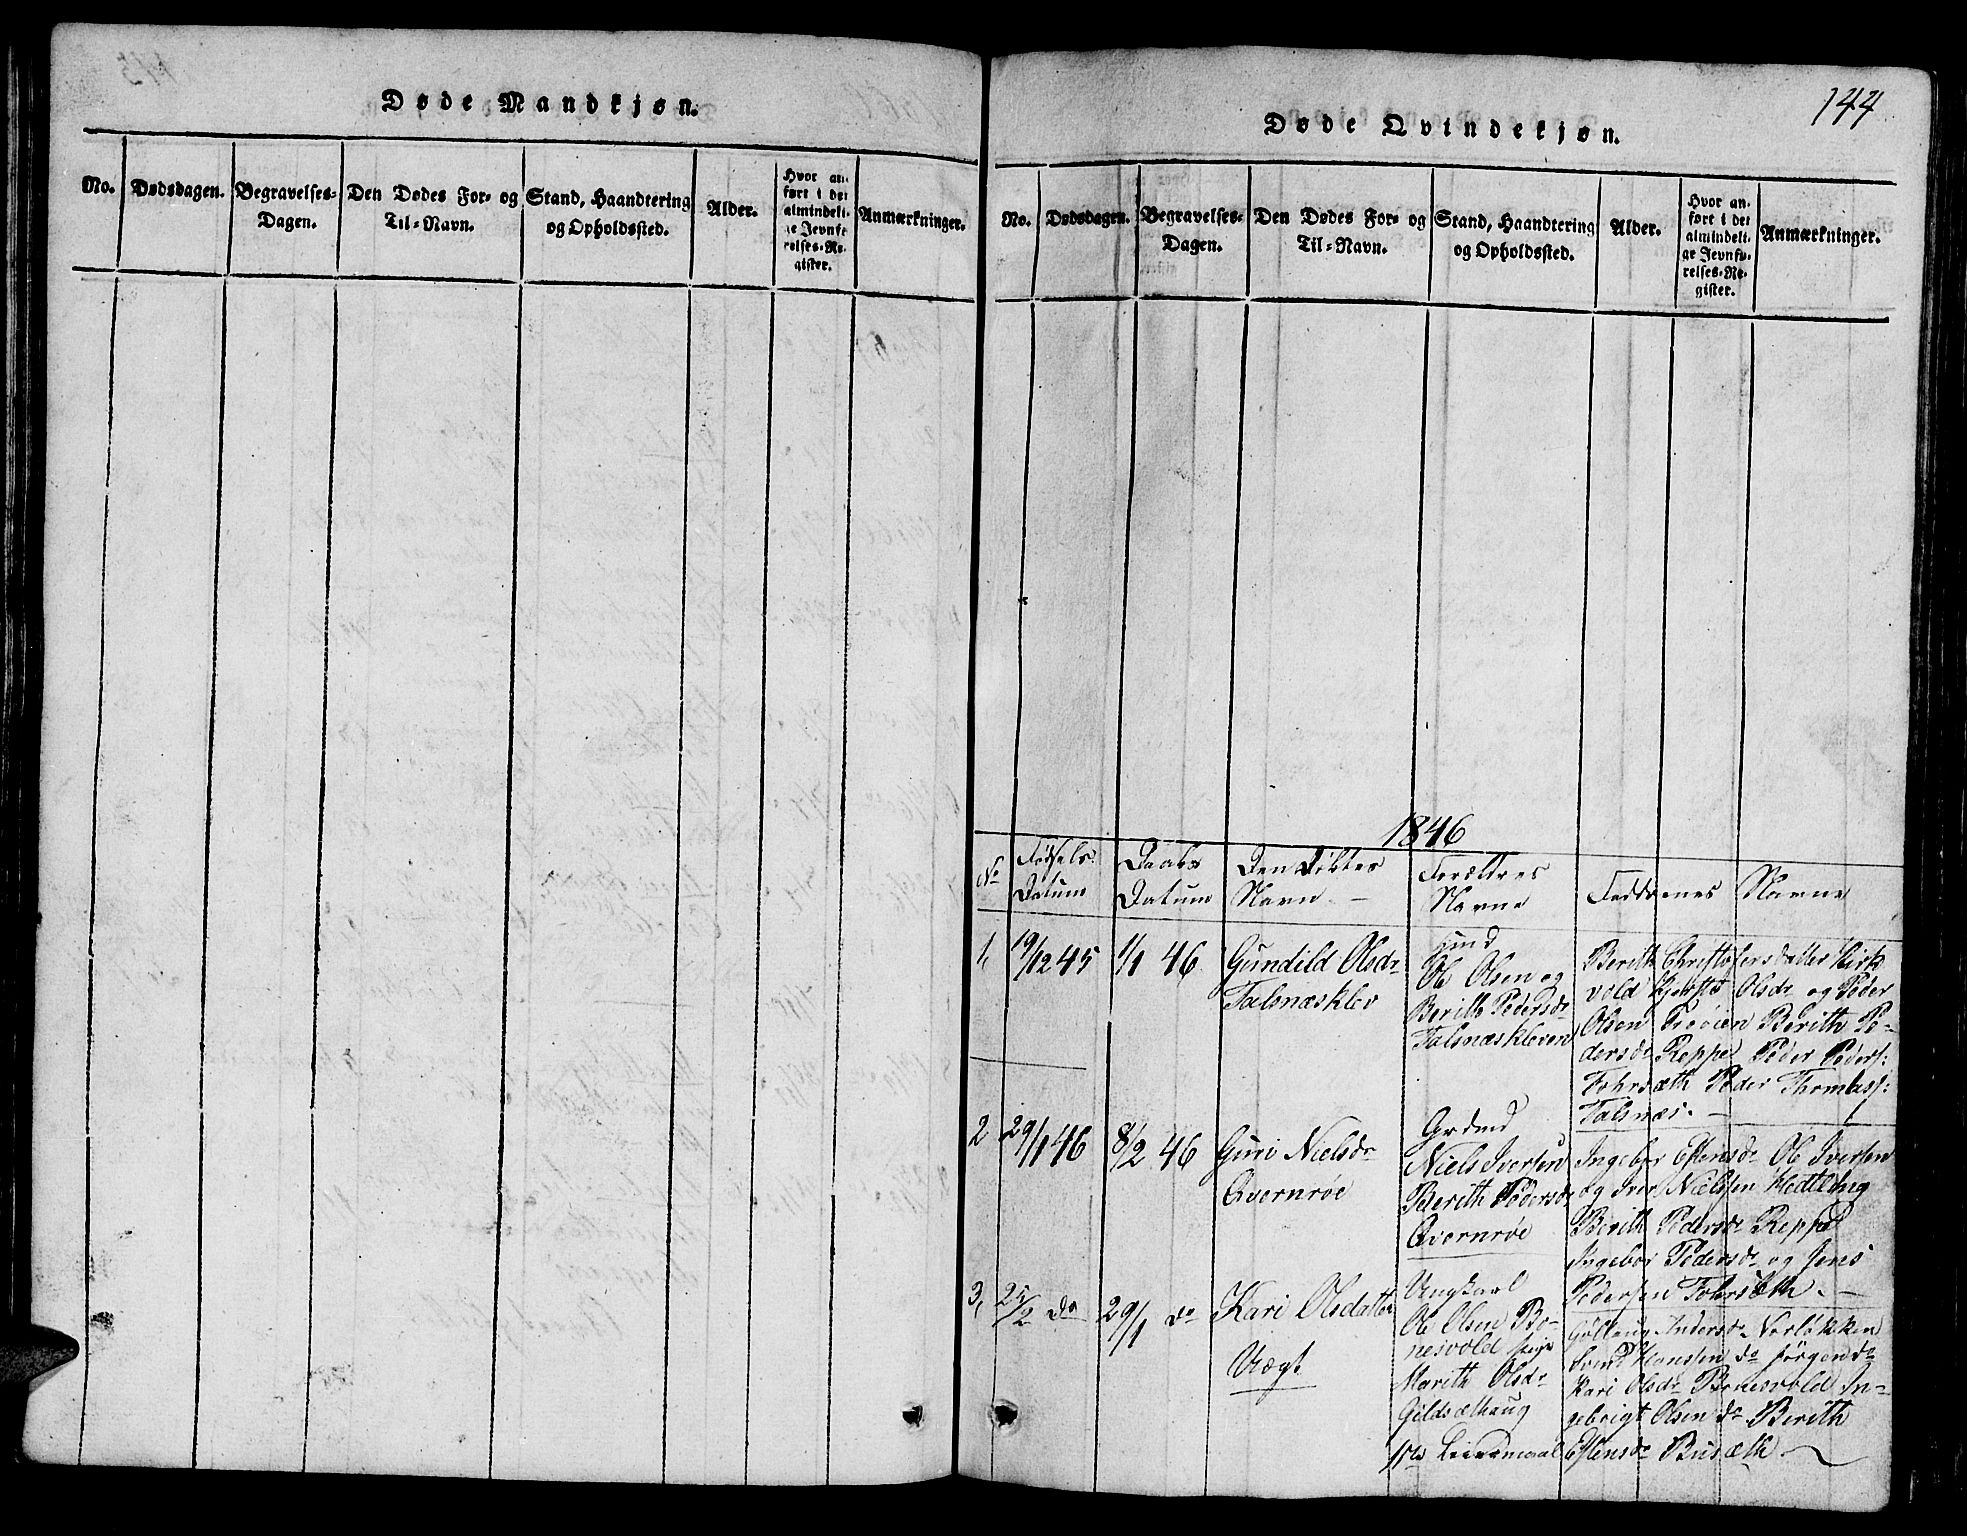 Døde Mandkjøn.
No.
Dødsdagen.
Begravelses-
Dagen.
Den Dødes For- og
Til-Navn.
Stand, Haandtering
og Opholdssted.
Alder.
Hvor an-
ført i det
almindeli-
ge Jevnfø-
relses-Re-
gister.
Anmærkninger.
144
Døde Qvindekjøn.
No.
Dødsdagen.
Begravelses-
Dagen.
Den Dødes For- og
Til-Navn.
Stand, Haandtering
og Opholdssted.
Alder.
Hvor an-
ført i det
almindeli-
ge Jevnfø-
relses-Re-
gister.
Anmærkninger.
1846
No
Fødsels
Datum
Daabs
Datum
Den Døbtes
Navn
Forældres
Navne
Faddernes Navne
1, 19/12 45 1/1 46
Gundild Olsdr
Talsnæsklev
Huusmd
Ole Olsen og
Berith Pedersdr
Talsnæskleven
Berith Christofersdatter Kirk
vold Olsdr og Peder
Olsen Trøøien Berith Pe-
dersdr Reppe Peder Peders:
Fohrsæth Peder Thomass:
Talsnæs.
2 29/1 46 8/2 46
Guri Nielsdr
Qvernrøe
Grdmd
Niels Iversen
Berith Pedersdr
Qvernrøe
Ingebor Estensdr Ole Iversen
og Iver Nielsen
Berith Pedersdr Reppe
Ingebor Pedersdr og Jens
Pedersen Fohrsæth.
3, 25/2 do 29/1 do
Kari Olsdatter
Uægt
Ungkarl
Ole Olsen Bo-
nesvold pige
Marith Olsdr
Gildsæthaug
1ste Leiermaal
Gøllaug Andersdr Norløkken
Svend Hanssen do Jørgen do
Kari Olsdr Bonesvold In-
gebrigt Olsen do Berith
Estensdr Busæth